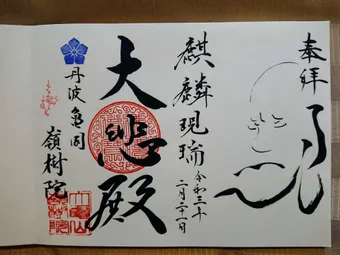 奉拝
麒麟現瑞
令和三年
二月二十一日
大悲殿
丹波亀岡
嶺樹院